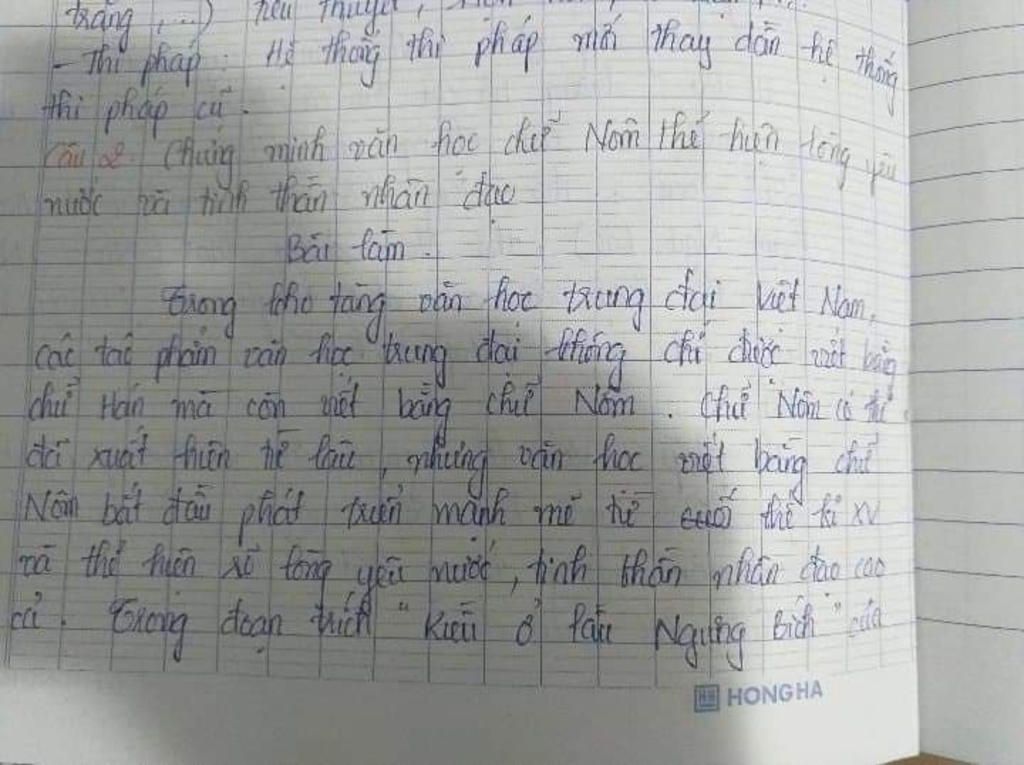 trăng,...) tiểu thuyết,
- Thi pháp: Hệ thống thi pháp mới thay dần hệ thống
thi pháp cũ.
Câu 2 Chứng minh văn học chữ Nôm thể hiện lòng yêu
nước và tinh thần nhân đạo
Bài làm.
Trong kho tàng văn học trung đại Việt Nam,
các tác phẩm văn học trung đại không chỉ được viết bằng
chữ Hán mà còn viết bằng chữ Nôm. Chữ Nôm có thể
đã xuất hiện từ lâu, nhưng văn học viết bằng chữ
Nôm bắt đầu phát triển mạnh mẽ từ cuối thế kỉ XV
và thể hiện rõ lòng yêu nước, tinh thần nhân đạo cao
cả. Trong đoạn trích "Kiều ở lầu Ngưng Bích" của
HONG HA